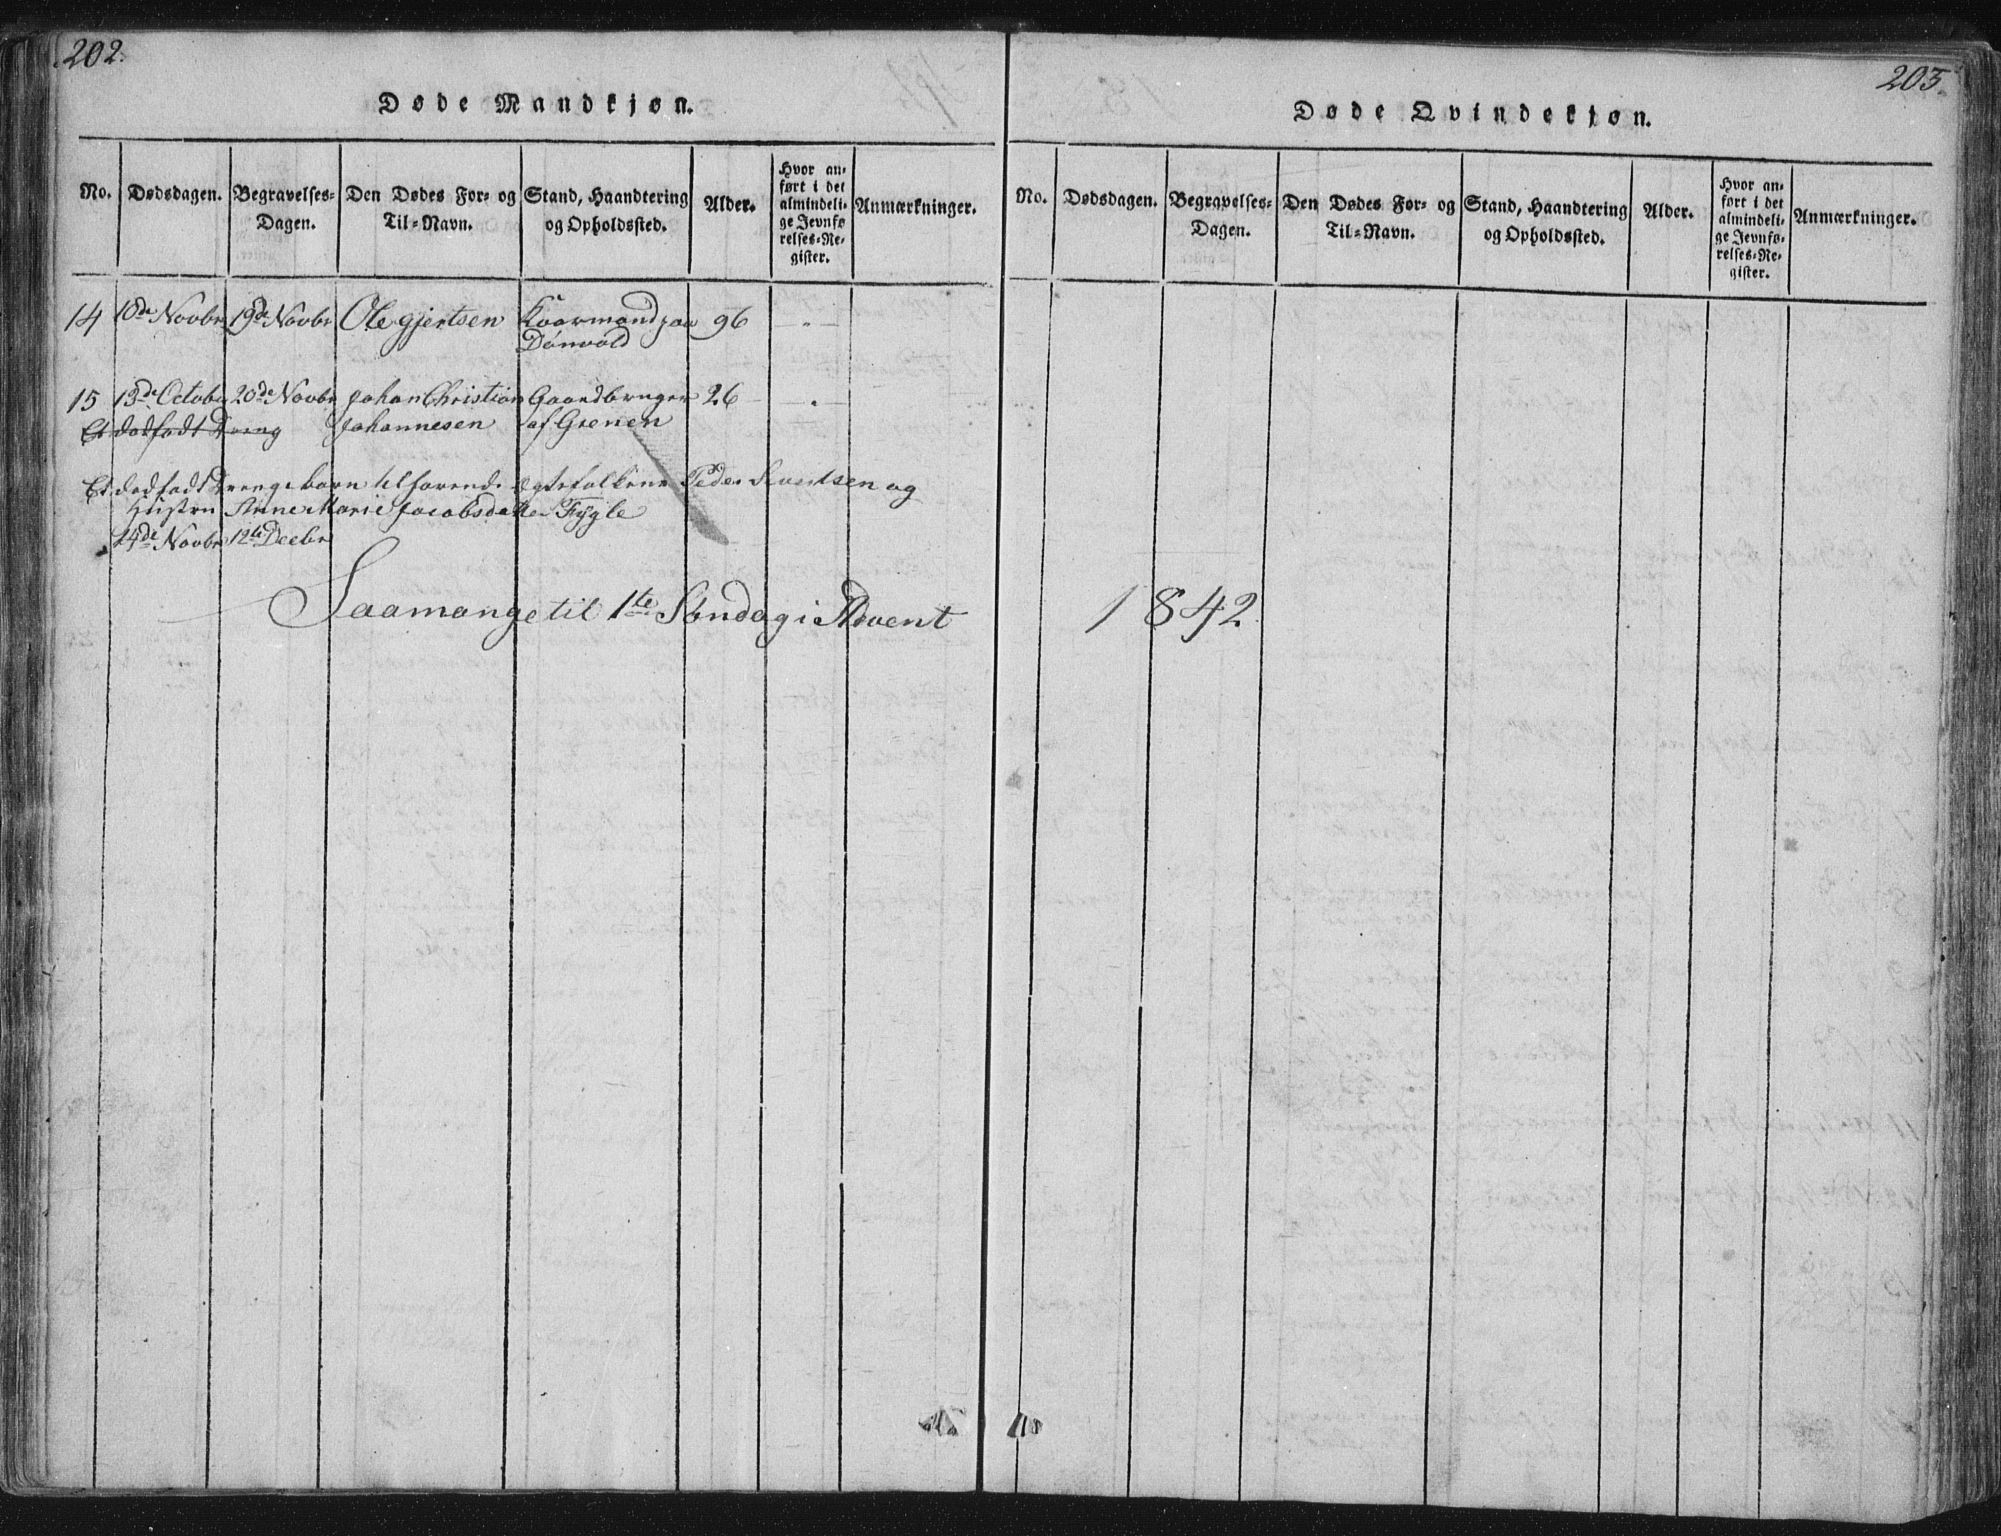 202.
Døde Mandkjøn.
No.
Dødsdagen.
Begravelses-
Dagen.
Den Dødes For- og
Til-Navn.
Stand, Haandtering
og Opholdssted.
Alder.
Hvor an-
ført i det
almindeli-
ge Jevnfø
relses-Re-
gister.
Anmærkninger.
14 18de Novbr 19de Novbr Ole Gjertsen Kaarmand paa 96 - " -
Dønvold
15 13de Octobr 20de Novbr Johan Christian Gaardbruger 26 - " -
Et dødfødt Dreng Johannesen af Grenen
Et dødfødt Drengebarn tilhørende Ægtefolkene Peder Sivertsen og
Hustru Anne Marie Jacobsdatter Fygle
24de Novbr 12te Decbr
Saamange til 1te Søndag i Advent 1842.
203.
Døde Qvindekjøn.
No.
Dødsdagen.
Begravelses-
Dagen.
Den Dødes For- og
Til-Navn.
Stand, Haandtering
og Opholdssted.
Alder.
Hvor an-
ført i det
almindeli-
ge Jevnfø-
relses-Re-
gister.
Anmærkninger.